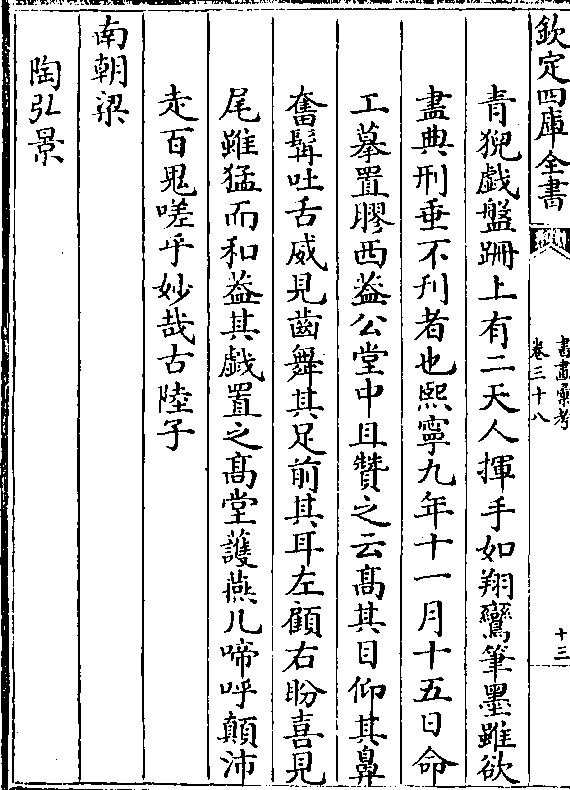 欽定四庫全書
書畫彙考
卷三十八
十三
青猊戯盤跚上有二天人揮手如翔鸞筆墨雖欲
盡典刑垂不刋者也熙寧九年十一月十五日命
工摹置膠西葢公堂中且贊之云髙其目仰其鼻
奮髯吐舌威見齒舞其足前其耳左顧右盼喜見
尾雖猛而和葢其戯置之髙堂䕶燕几啼呼顛沛
走百鬼嗟乎妙哉古陸子
南朝梁
陶弘景